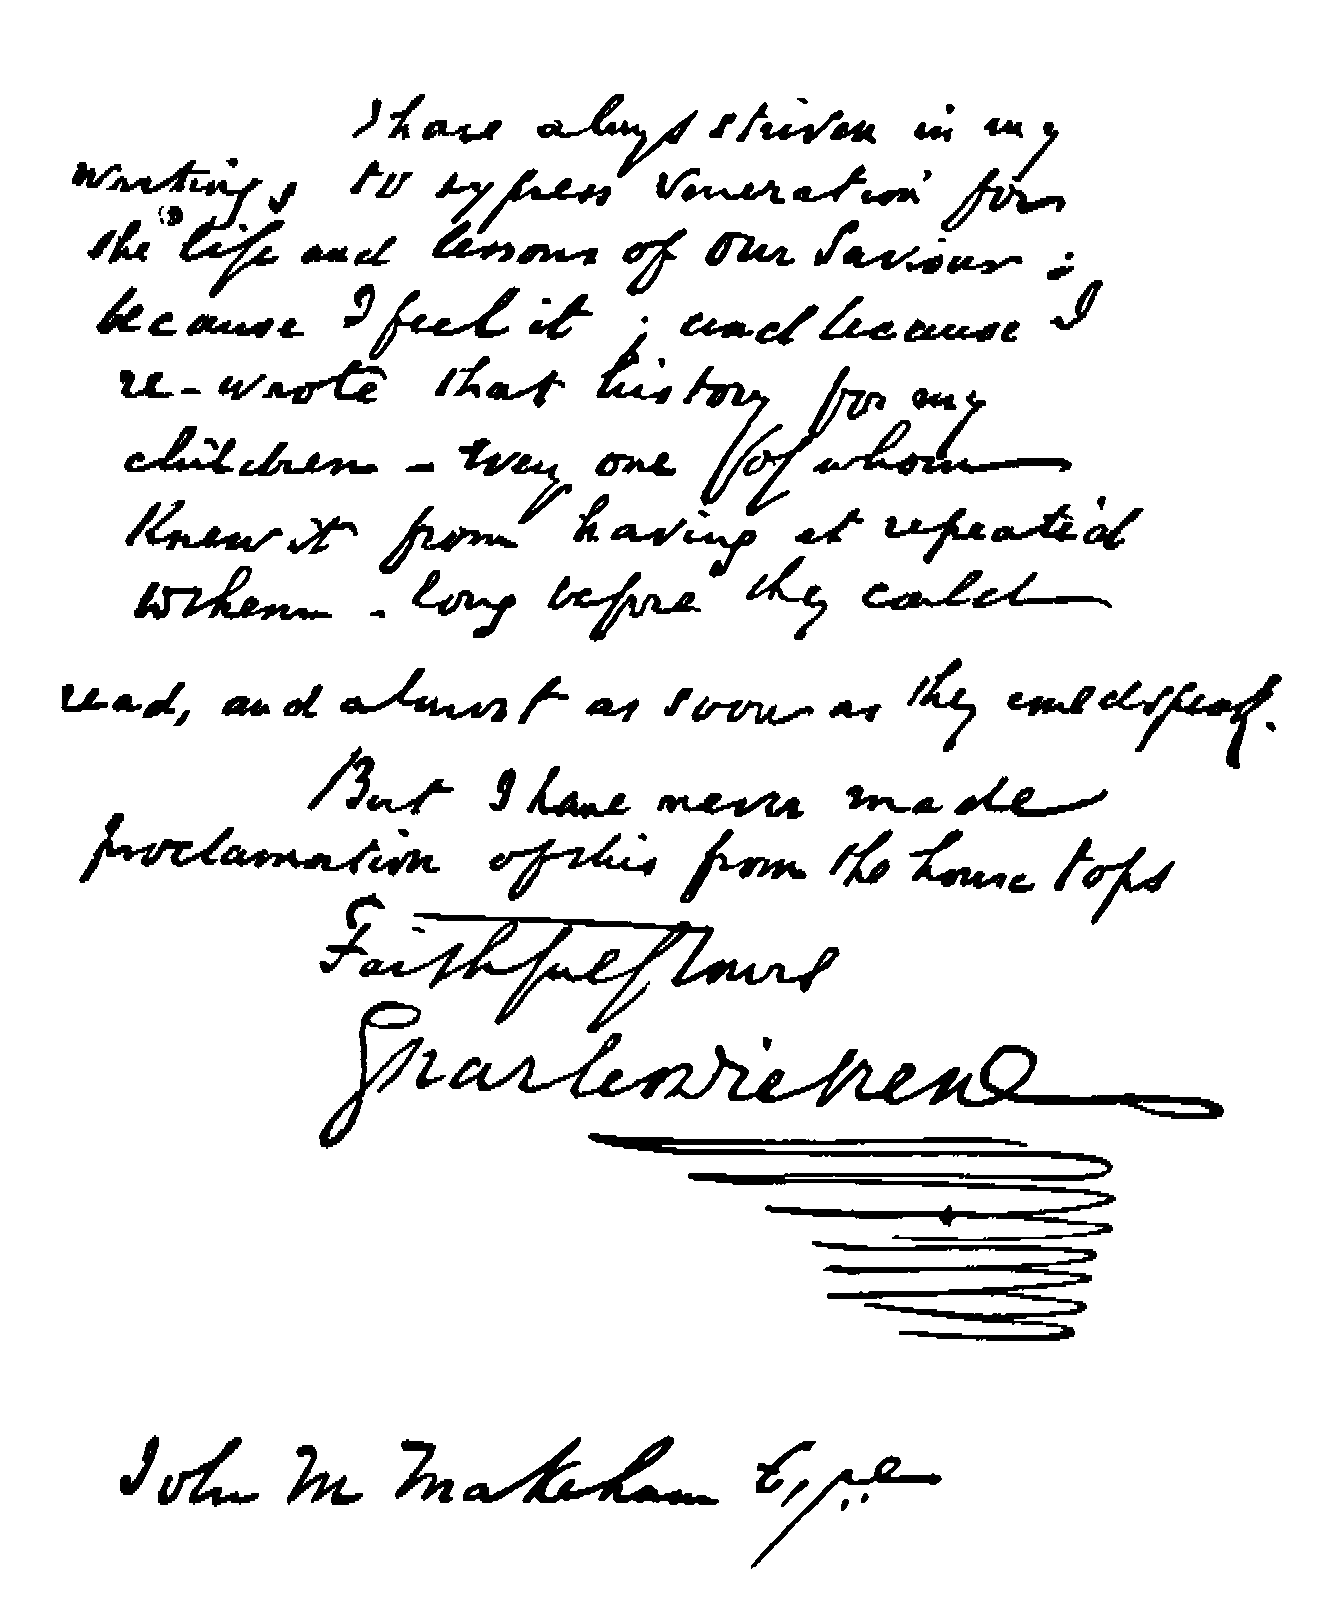 I have always striven in my
writings to express veneration for
the life and lessons of Our Saviour ;
because I feel it ; and because I
re-wrote that history for my
children - every one of whom
Knew it from having it repeated
to them - long before they could
read, and almost as soon as they could speak.
But I have never made
proclamation of this from the house tops
Faithfully Yours
Charles Dickens
John M Makeham Esqre